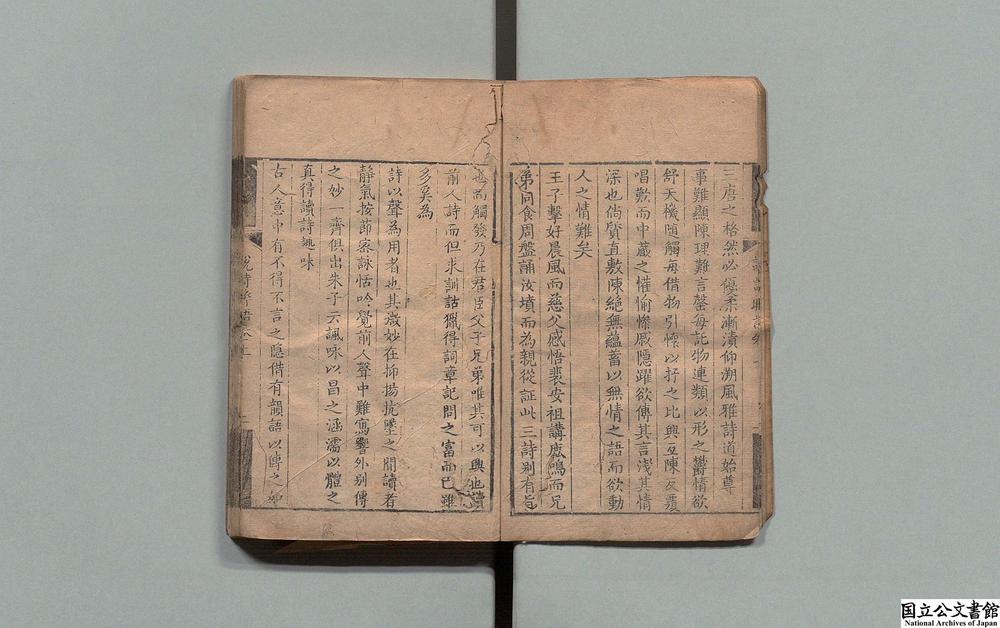 三唐之格然必優柔漸漬仰溯風雅詩道始尊
事難顯陳理難言罄每託物連類以形之鬱情欲
舒天機随觸每借物引懷以抒之比興互陳反覆
唱歎而中藏之懽愉慘戚隱躍欲傳其言淺其情
深也倘質直敷陳絕無蘊蓄以無情之語而欲動
人之情難矣
王子擊好晨風而慈父感悟裴安祖講鹿鳴而兄
弟同食周盤誦汝墳而為親從証此三詩别有旨
也而觸發乃在君臣父子兄弟唯其可以興也讀
前人詩而但求訓詁獵得詞章記問之富而已雖
多奚為
詩以聲為用者也其微妙在抑揚抗墜之間讀者
靜氣按節宻詠恬吟覺前人聲中難寫響外别傳
之妙一齊俱出朱子云諷咏以昌之涵濡以體之
真得讀詩趣味
古人意中有不得不言之隱借有韻語以傳之如
說詩晬語卷上
国立公文書館
National Archives of Japan